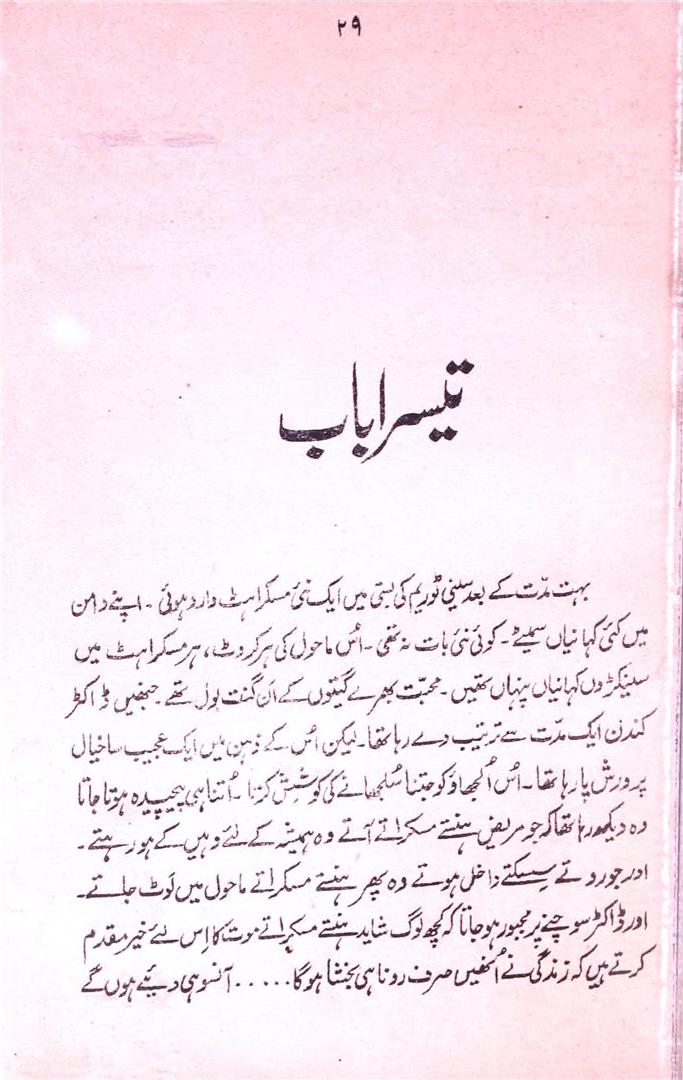 ۲۹
تیسرا باب
بہت مدّت کے بعد سینی ٹوریم کی بستی میں ایک نئی مسکراہٹ وارد ہوئی ۔ اپنے دامن
میں کئی کہانیاں سمیٹے ۔ کوئی نئی بات نہ تھی ۔ اُس ماحول کی ہر کروٹ، ہر مسکراہٹ میں
سینکڑوں کہانیاں پنہاں تھیں ۔ محبّت بھرے گیتوں کے اَن گنت بول تھے ۔ جنھیں ڈاکٹر
کندن ایک مدّت سے ترتیب دے رہا تھا ۔ لیکن اُس کے ذہن میں ایک عجیب سا خیال
پرورش پا رہا تھا ۔ اس اُلجھاؤ کو جتنا سُلجھانے کی کوشِش کرتا ۔ اُتنا ہی پیچیدہ ہوتا جاتا
وہ دیکھ رہا تھا کہ جو مریض ہنستے مسکراتے آتے وہ ہمیشہ کے لئے وہیں کے ہو رہتے ۔
اور جو روتے سِسکتے داخل ہوتے وہ پھر ہنستے مسکراتے ماحول میں لَوٹ جاتے ۔
اور ڈاکٹر سوچنے پر مجبور ہو جاتا کہ کچھ لوگ شاید ہنستے مسکراتے موت کا اِس لئے خیر مقدم
کرتے ہیں کہ زندگی نے اُنھیں صرف رونا ہی بخشا ہو گا ۔۔۔۔۔ آنسو ہی دیئے ہوں گے